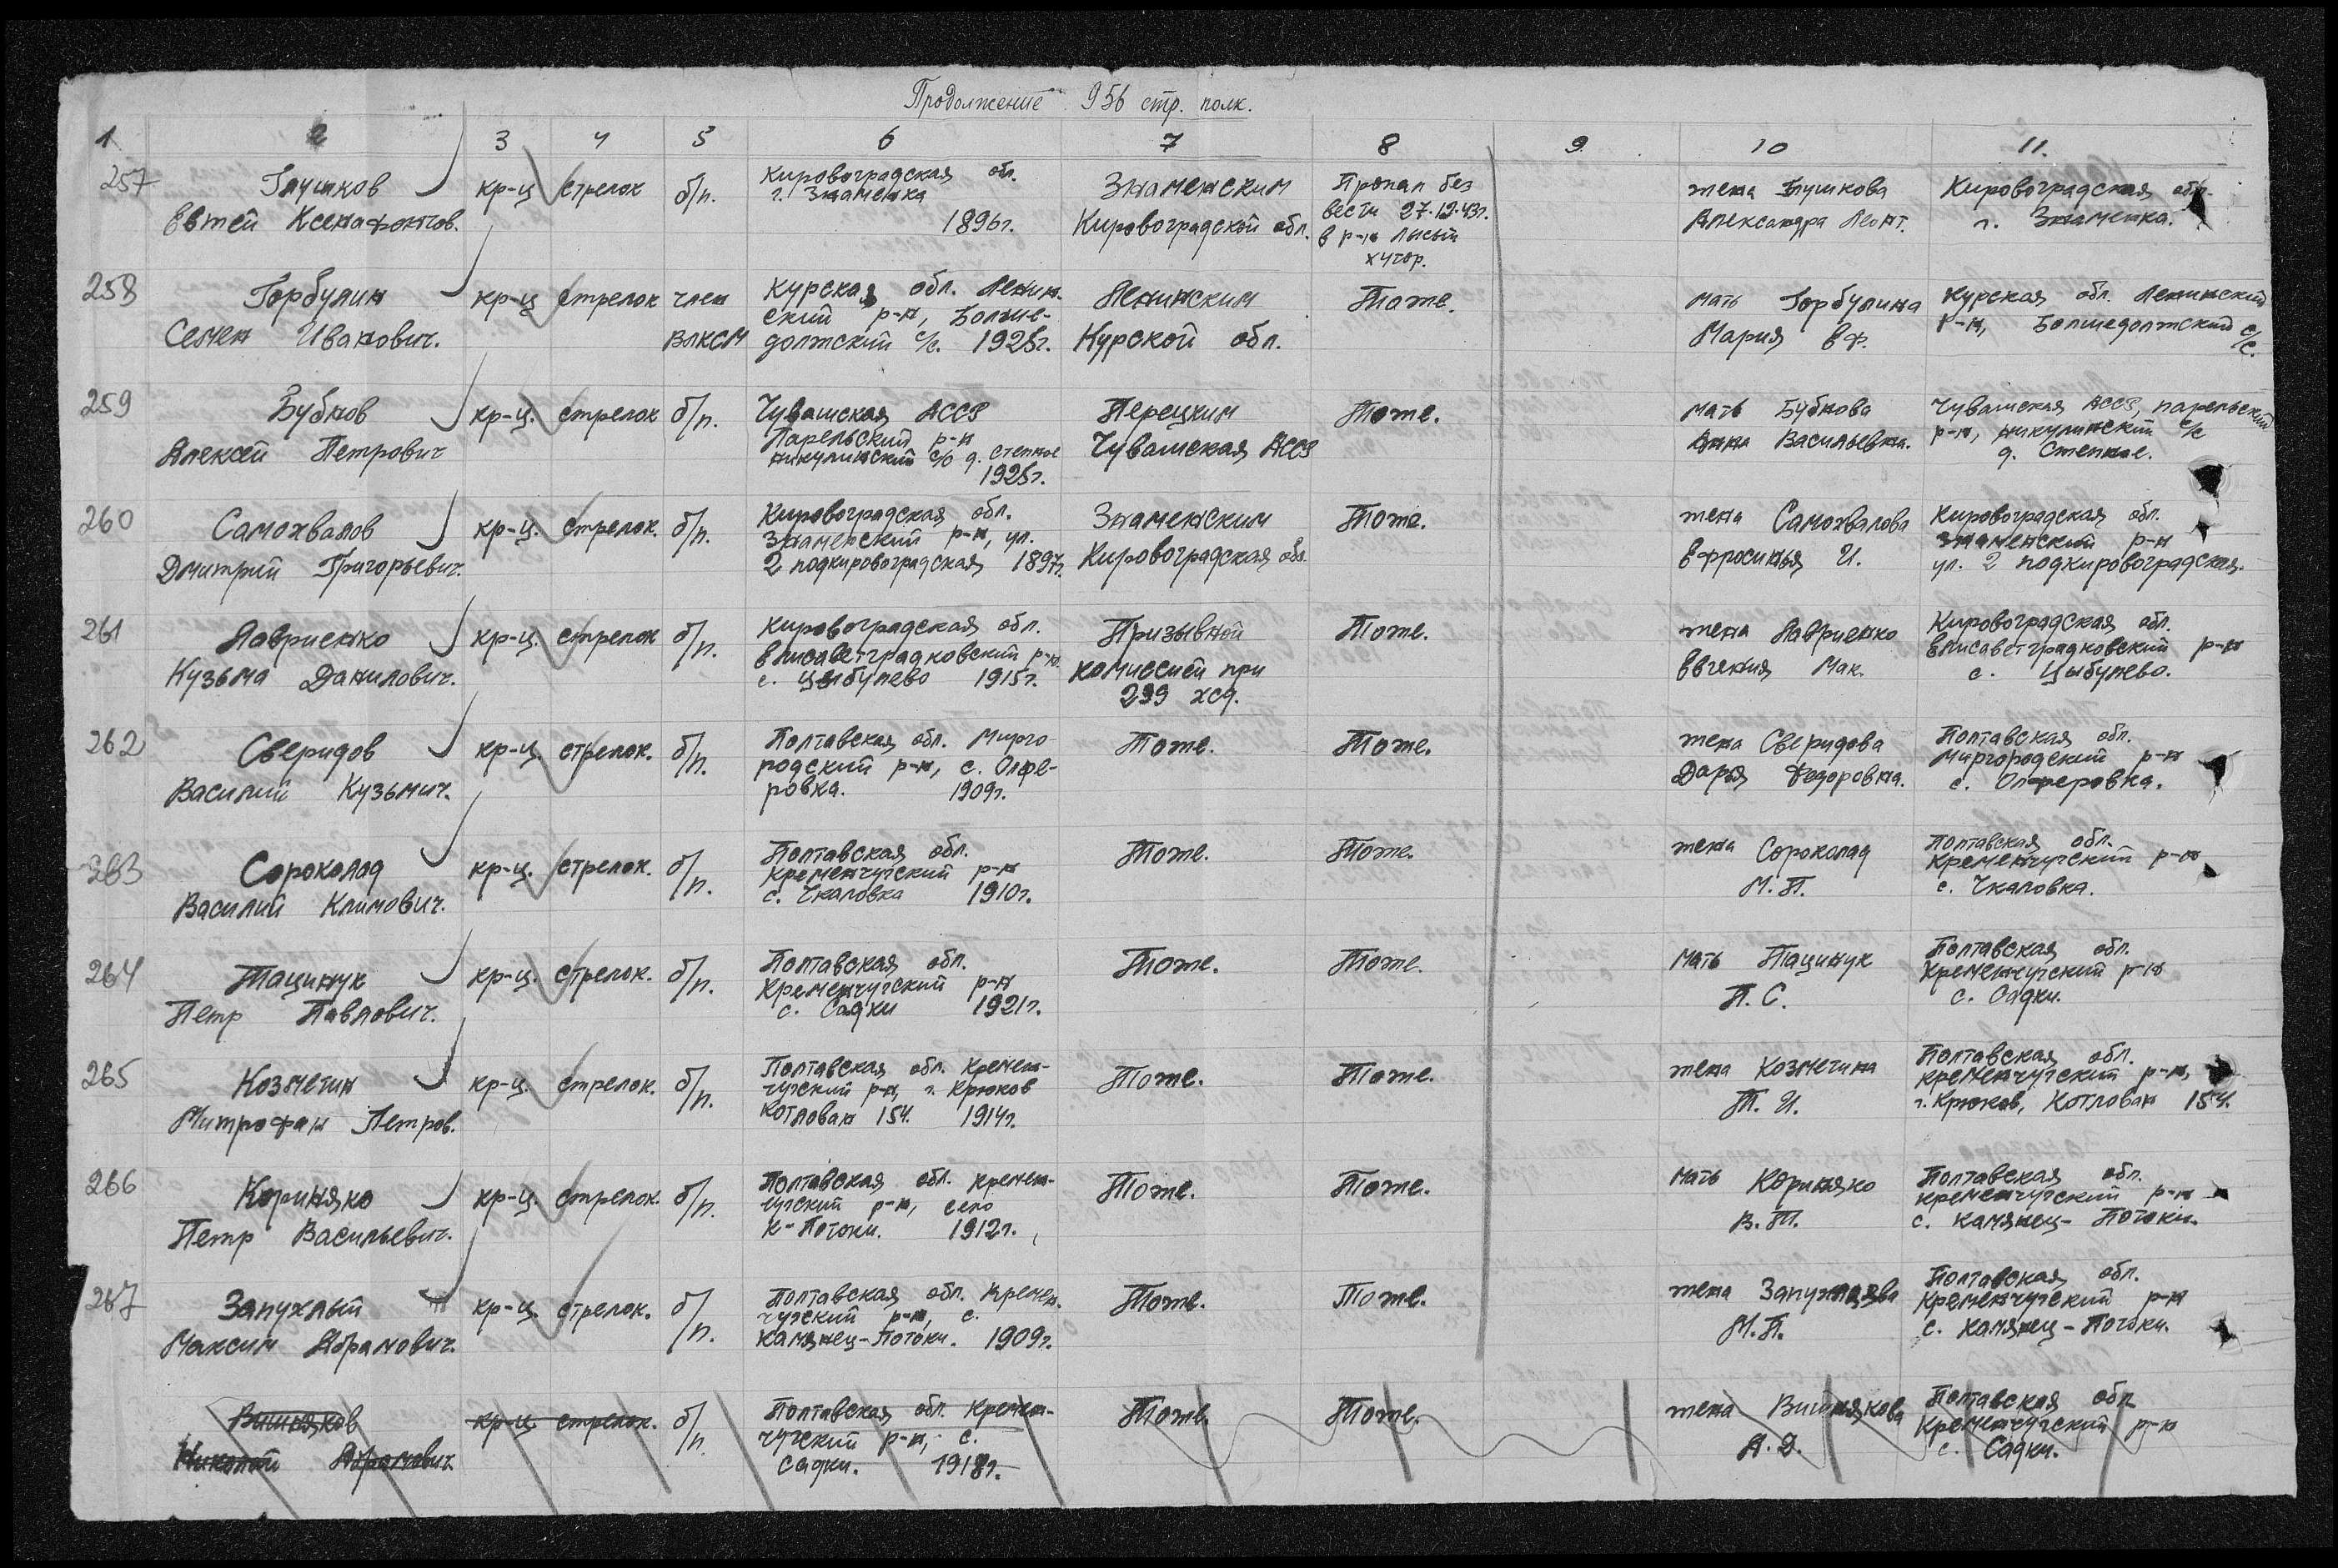 Продолжение 956 стр. полк.
1 2 3 4 5 6 7 8 9 10 11.
257 Глушков кр-ц стрелок б/п. Кировоградская обл. Знаменским Пропал без жена Глушкова Кировоградская обл.
Евтей Ксенафонтов. г. Знаменка 1896г. Кировоградской обл. вести 27.12.43г. Александра Леонт. г. Знаменка.
в р-не Лысый
хутор.
258 Горбулин кр-ц стрелок член Курская обл. Ленин- Ленинским Тоже. мать Горбулина Курская обл. Ленинский
Семен Иванович. ВЛКСМ ский р-н, Больше- Курской обл. Мария Еф. р-н, Болшедолжский с/с.
должский с/с. 1925г.
259 Бубнов кр-ц. стрелок б/п. Чувашская АССР Перецким Тоже. мать Бубнова Чувашская АССР, парельский
Алексей Петрович Парельский р-н Чувашская АССР Анна Васильевна. р-н, никулинский с/с
никулинский с/с д. Степное д. Степное.
1925г.
260 Самохвалов кр-ц. стрелок. б/п. Кировоградская обл. Знаменским Тоже. жена Самохвалова Кировоградская обл.
Дмитрий Григорьевич. Знаменский р-н, ул. Кировоградская обл. Ефросинья И. Знаменский р-н
2 подкировоградская 1897г. ул. 2 подкировоградская.
261 Лавриенко кр-ц. стрелок б/п. Кировоградская обл. Призывной Тоже. жена Лавриенко Кировоградская обл.
Кузьма Данилович. Елисаветградковский р-н. комиссией при Евгения Мак. Елисаветградковский р-н
с. Цыбулево 1915г. 299 хсд. с. Цыбулево.
262 Сверидов кр-ц. стрелок. б/п. Полтавская обл. Мирго- Тоже. Тоже. жена Сверидова Полтавская обл.
Василий Кузьмич. родский р-н, с. Олфе- Дарья Федоровна. Миргородский р-н
ровка. 1909г. с. Олферовка.
263 Сороколад кр-ц. стрелок. б/п. Полтавская обл. Тоже. Тоже. жена Сороколад Полтавская обл.
Василий Климович. Кременчугский р-н М.П. Кременчугский р-н
с. Чкаловка 1910г. с. Чкаловка.
264 Тацинук кр-ц. стрелок. б/п. Полтавская обл. Тоже. Тоже. мать Пацинук Полтавская обл.
Петр Павлович. Кременчугский р-н П. С. Кременчугский р-н
с. Садки 1921г. с. Садки.
265 Козметин кр-ц. стрелок. б/п. Полтавская обл. Кремен- Тоже. Тоже. жена Козметина Полтавская обл.
Митрофан Петров. чугский р-н, г. Крюков Т. И. Кременчугский р-н,
Котлован 154. 1914г. г. Крюков, Котлован 154.
266 Кориняко кр-ц. стрелок. б/п. Полтавская обл. Кремен- Тоже. Тоже. мать Кориняко Полтавская обл.
Петр Васильевич. чугский р-н, село В.П. Кременчугский р-н
К-Потоки. 1912г. с. Камянец-Потоки.
267 Запухлый кр-ц. стрелок. б/п. Полтавская обл. Кремен- Тоже. Тоже. жена Полтавская обл.
Максим Абрамович. чугский р-н, с. М.П. Кременчугский р-н
Камянец-Потоки. 1909г. с. Камянец-Потоки.
Вишняков кр-ц стрелок. б/п. Полтавская обл. Кремен- Тоже. Тоже. жена Вишнякова Полтавская обл
Николай Абрамович чугский р-н, с. А.Д. Кременчугский р-н
Садки. 1918г. с. Садки.